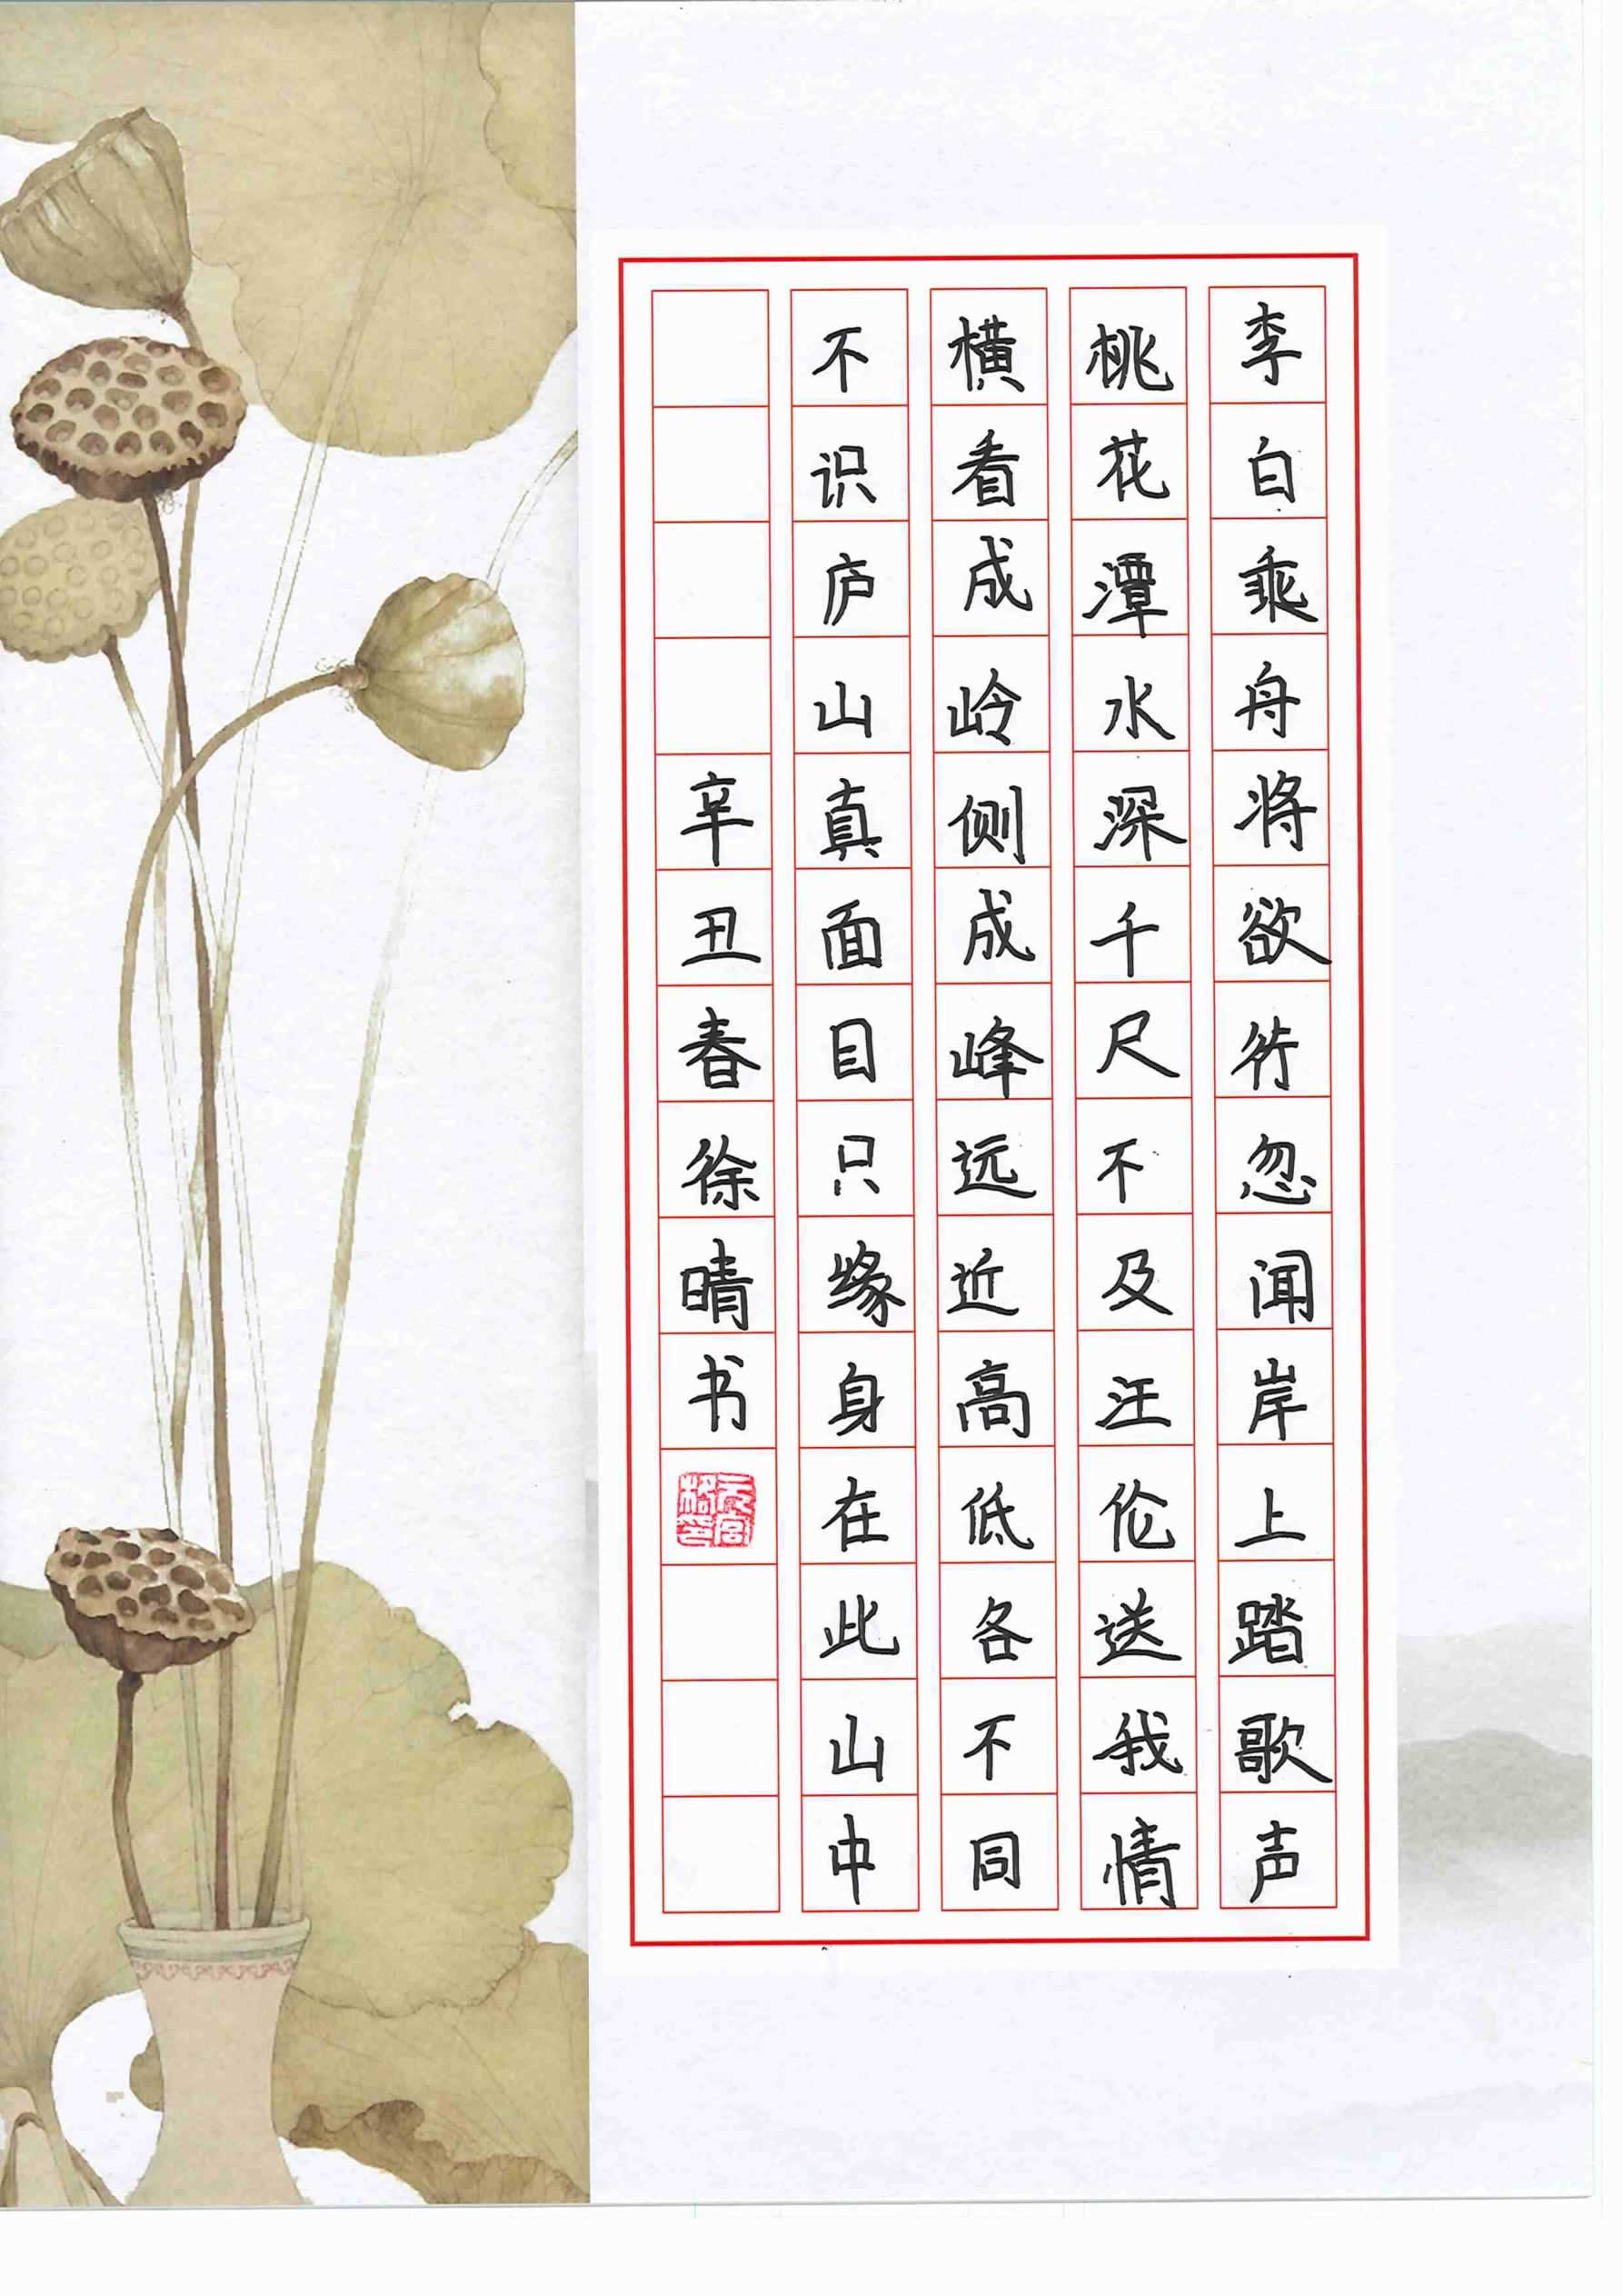 李白乘舟将欲行忽闻岸上踏歌声
桃花潭水深千尺不及汪伦送我情
横看成岭侧成峰远近高低各不同
不识庐山真面目只缘身在此山中
辛丑春徐晴书